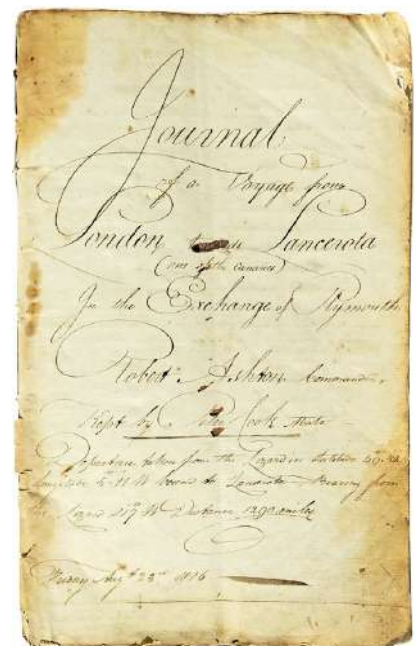 Journal
of a Voyage from
London towards Lancerota
(one of the Canaries)
In the Exchange of Plymouth
Robert Ashton Commander,
Kept by Cook Mate
Departure taken from the Lizard in Latitude
Longitude 5..11 W bound to Lancerota Bearing from
the Lizard W Distance 1290 miles
Friday Augt 23rd